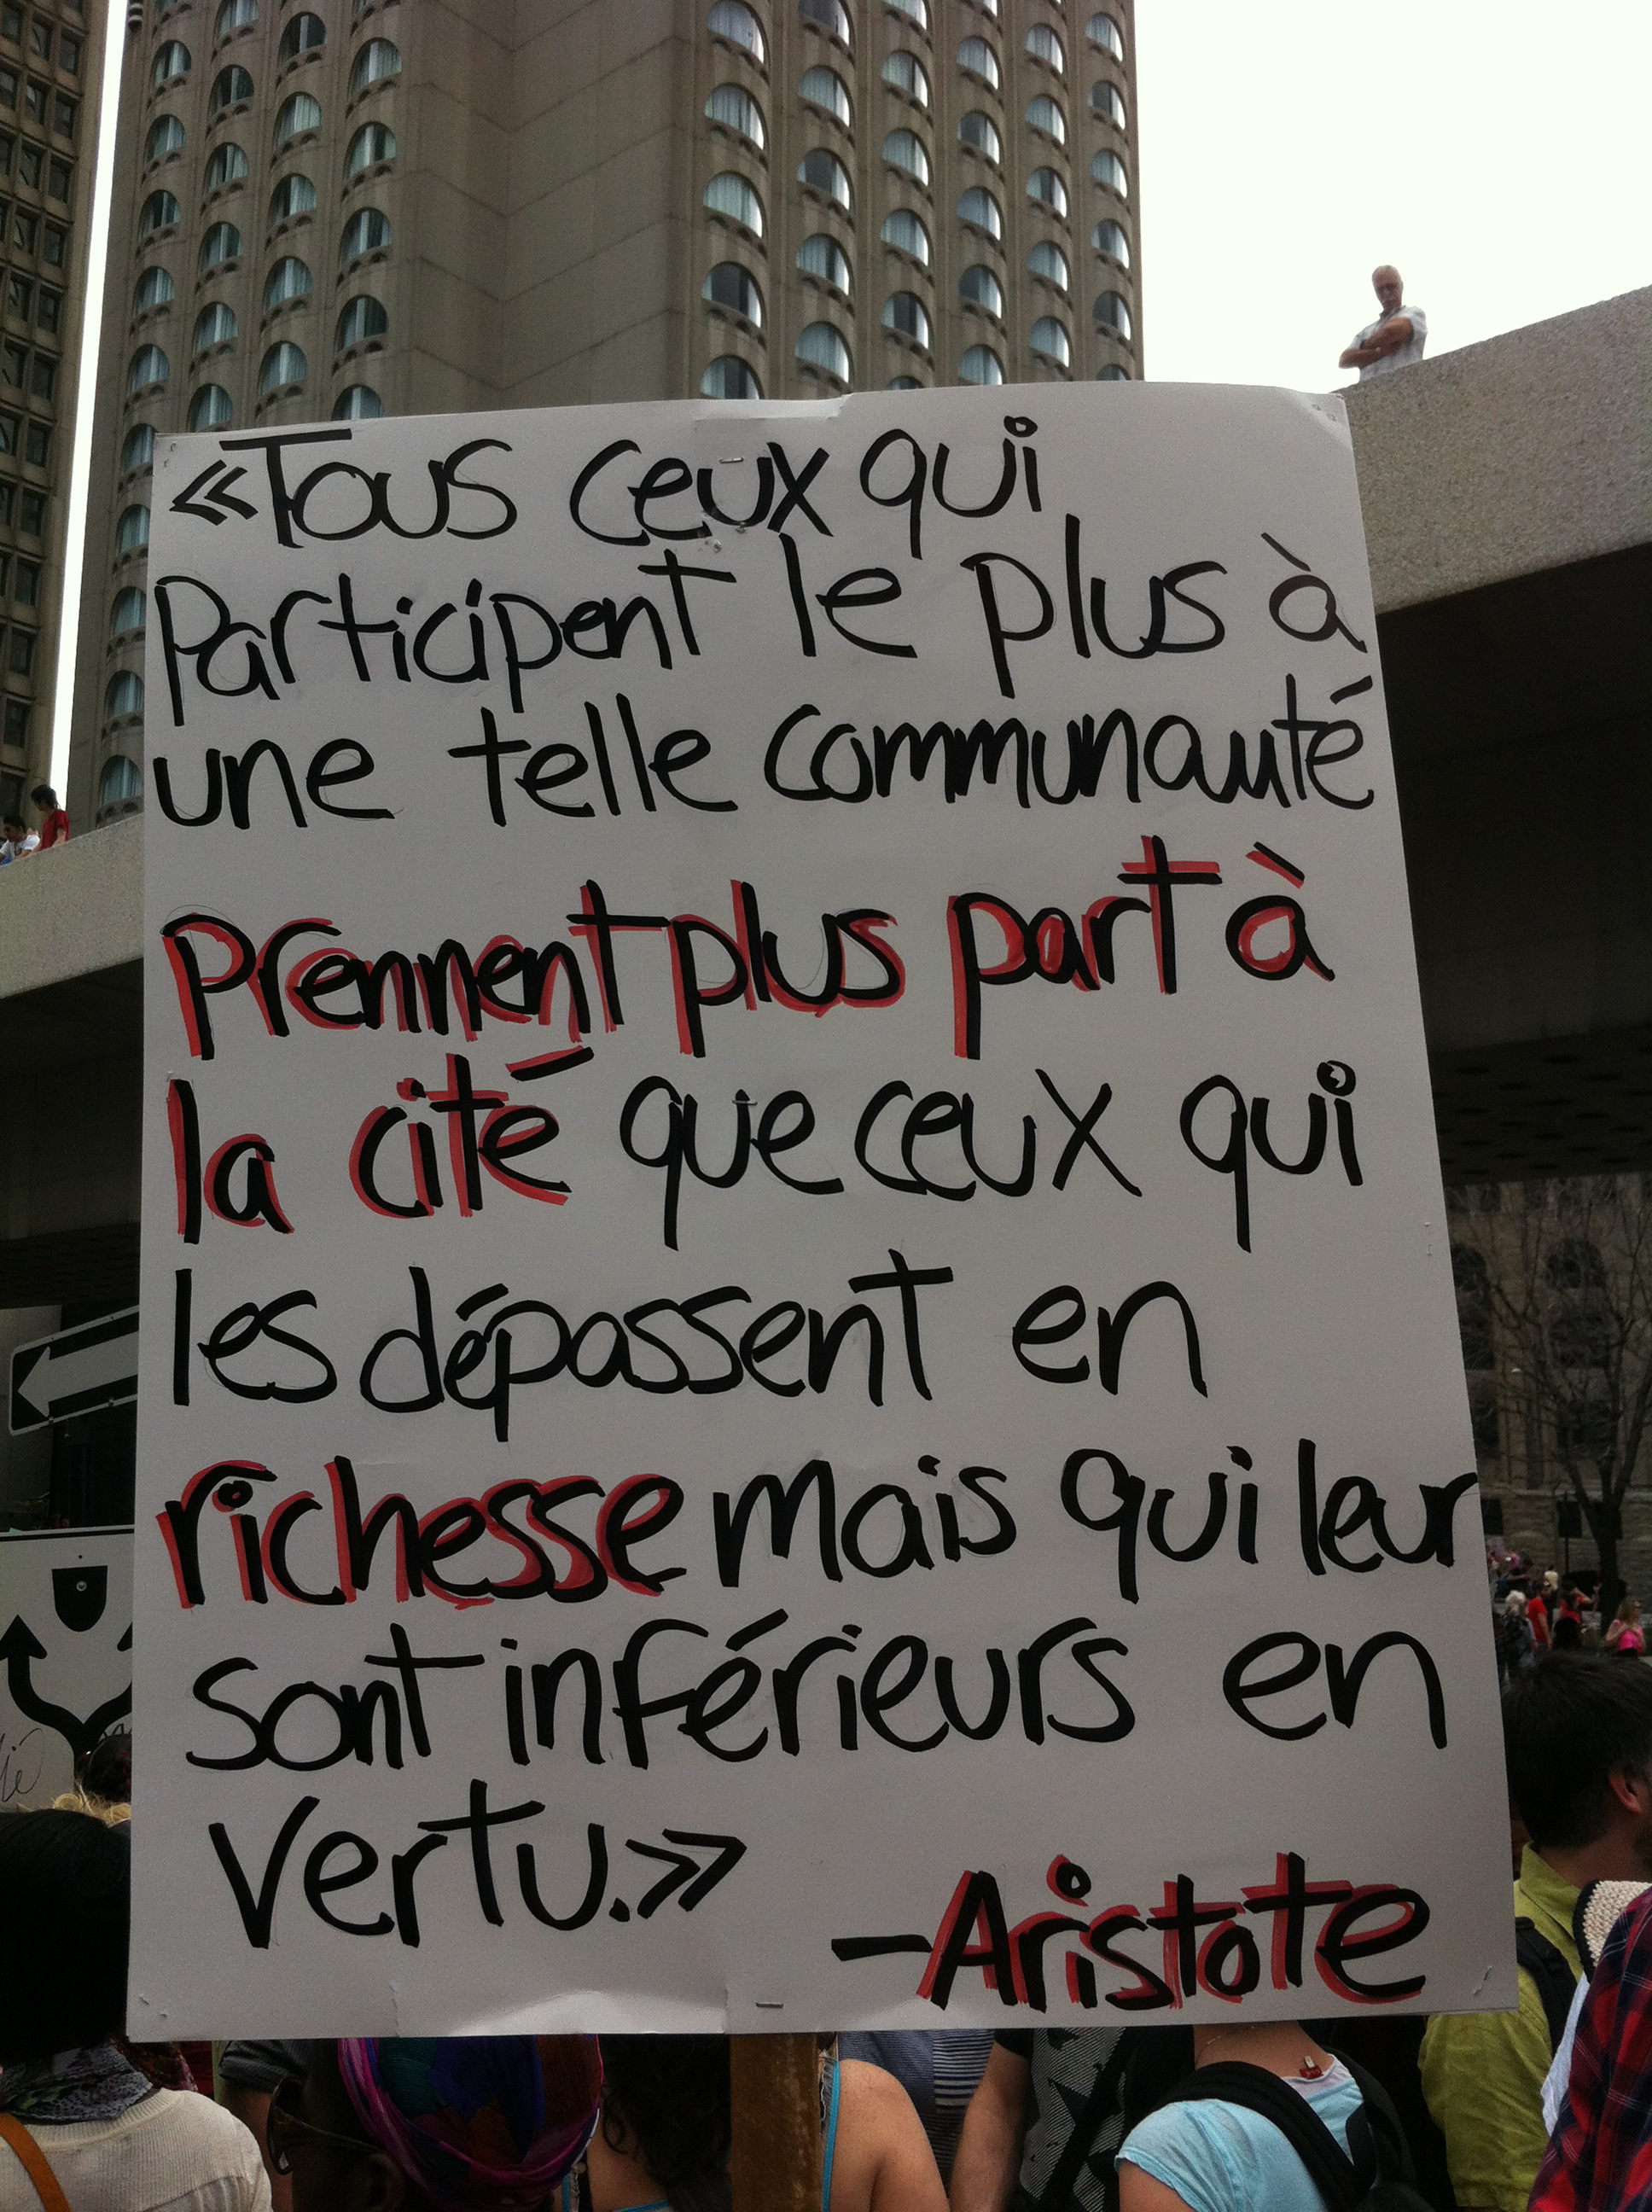 «Tous ceux qui
Participent le plus à
une telle communauté
prennent plus part à
la cité que ceux qui
les dépassent en
richesse mais qui leur
sont inférieurs en
vertu.»
-Aristote